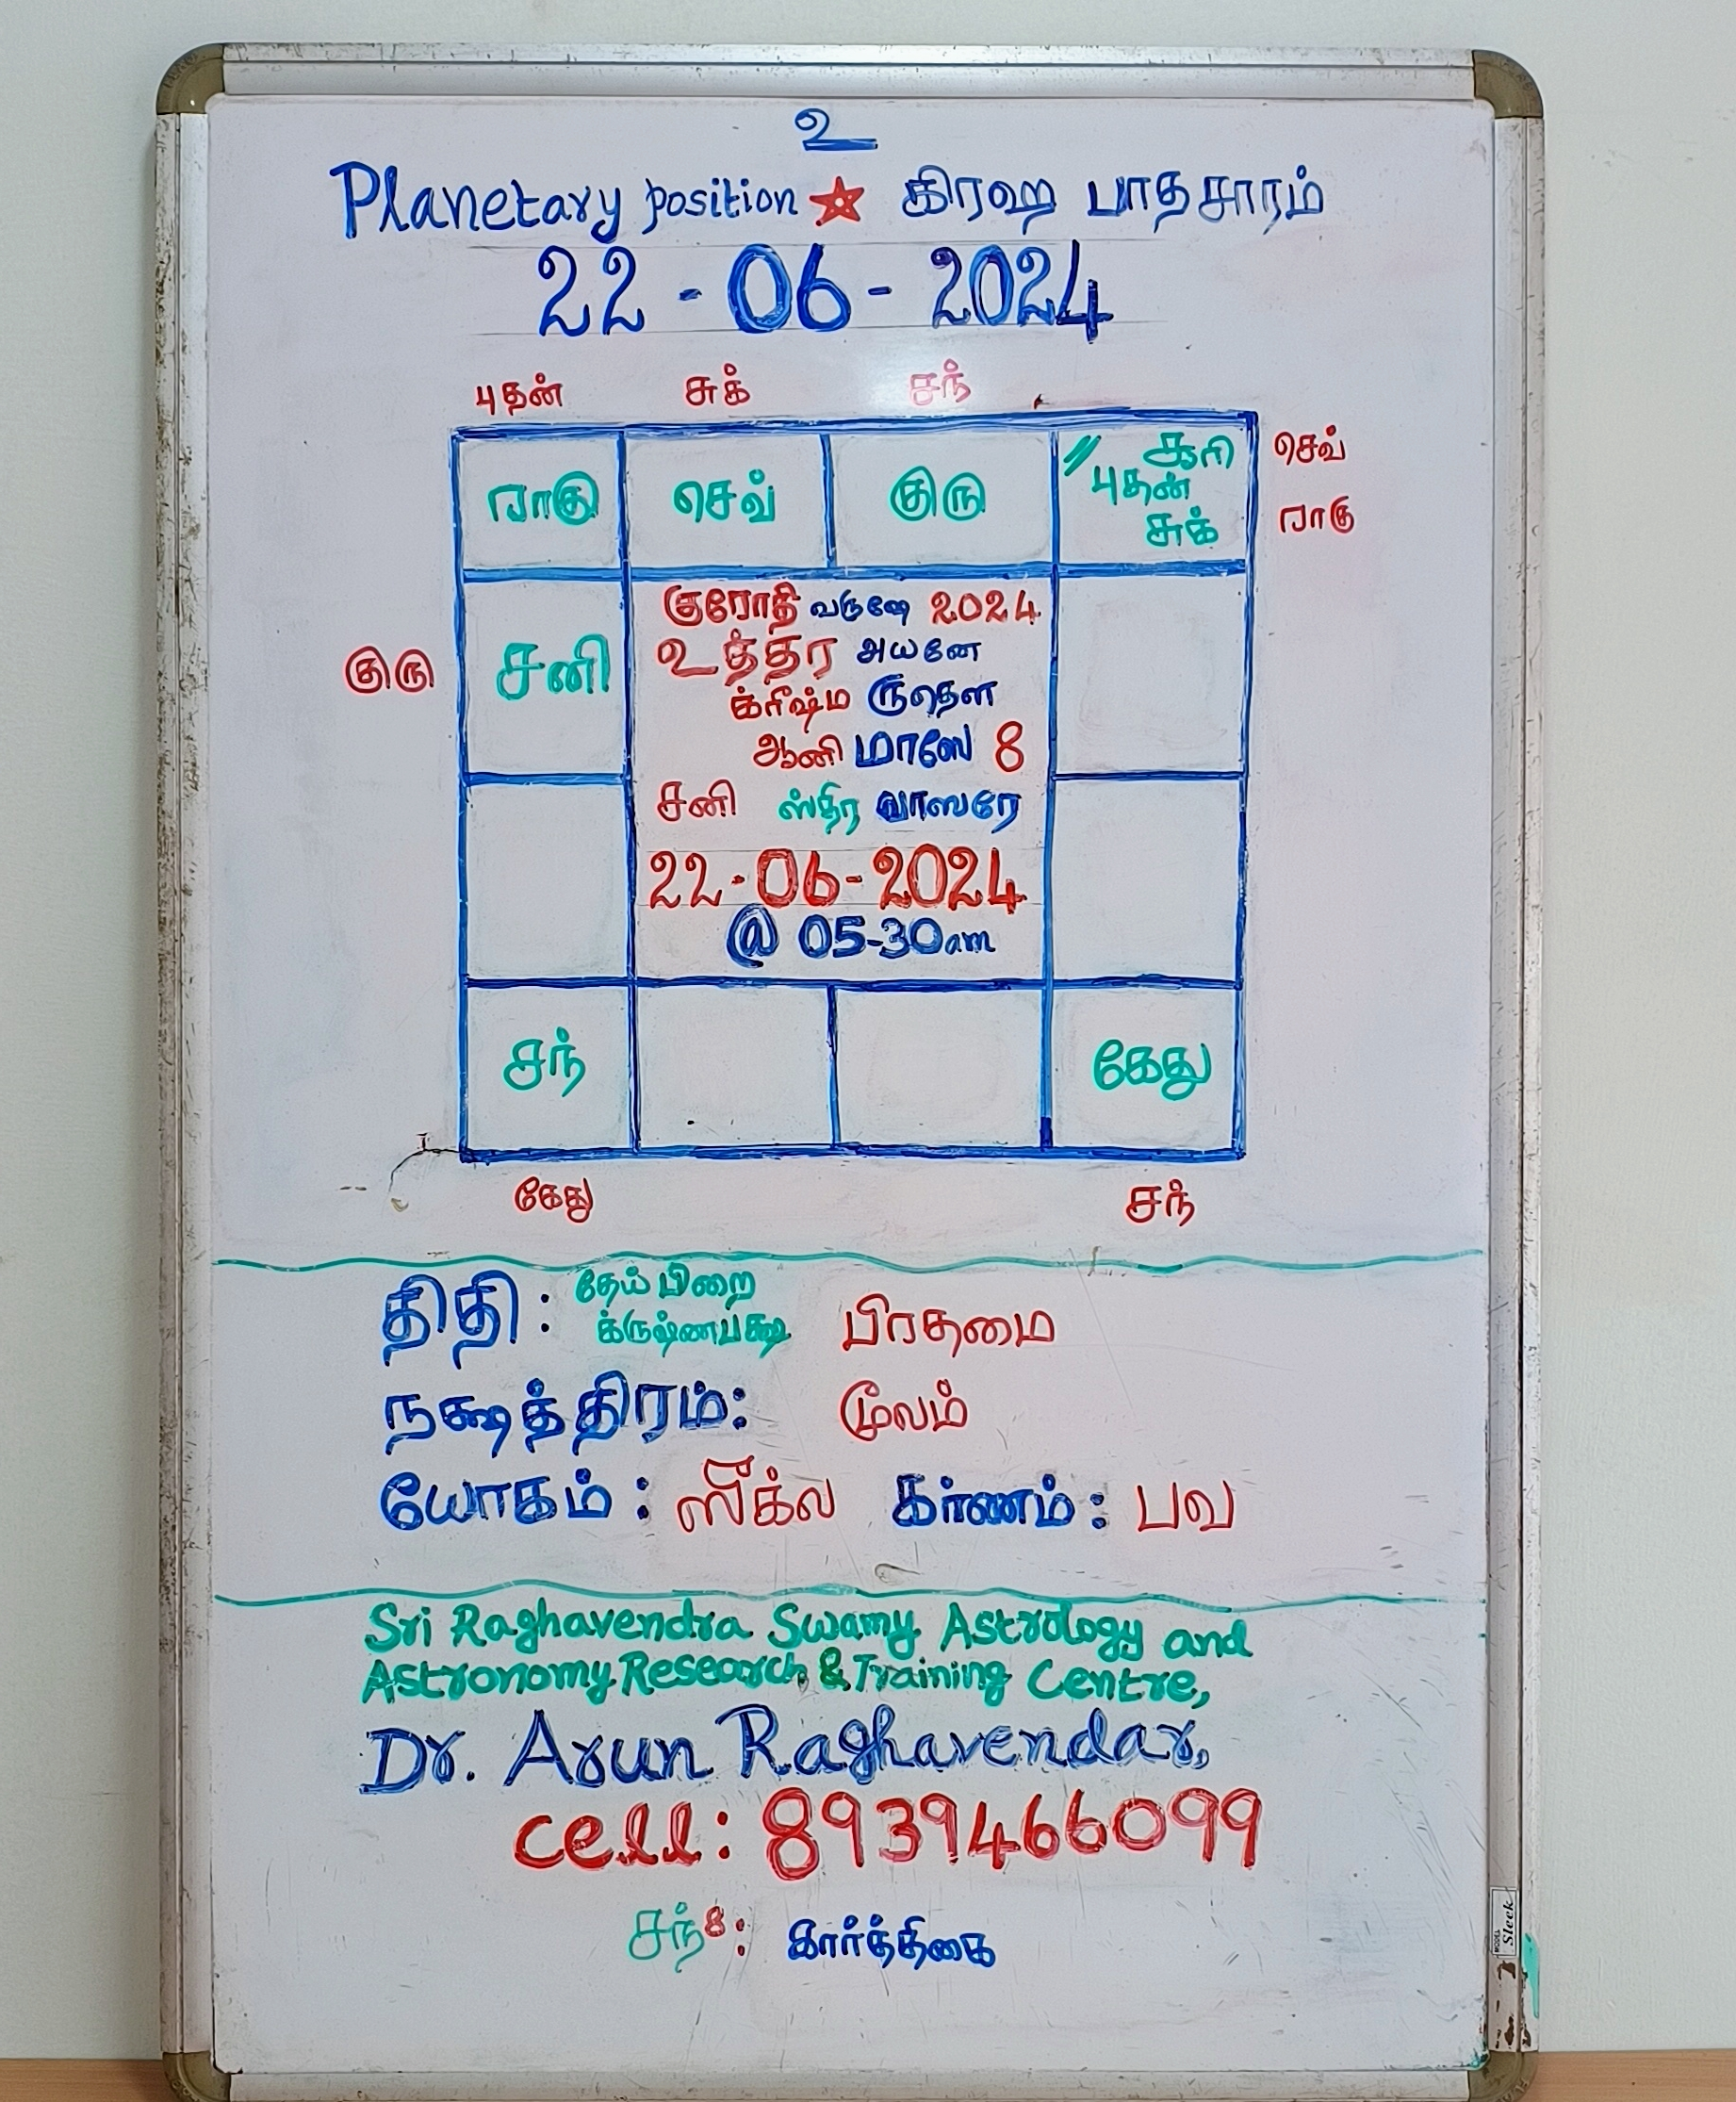 உ
Planetary position ★ கிரஹ பாதசாரம்
22-06-2024
புதன் சுக் சந்
ராகு செவ் குரு // சூரி செவ்
புதன்
சுக் ராகு
குரோதி வருஷே 2024
உத்தர அயனே
குரு சனி
க்ரீஷ்ம ருதௌ
ஆனி மாஸே 8
சனி ஸ்திர வாஸரே
22-06-2024
@ 05-30am
சந் கேது
கேது சந்
திதி: தேய்பிறை பிரதமை
க்ருஷ்ணபக்ஷ
நக்ஷத்திரம்: மூலம்
யோகம்: ஸீக்ல கர்ணம்: பவ
Sri Raghavendra Swamy Astrology and
Astronomy Research & Training Centre,
Dr. Arun Raghavendar,
cell: 8939466099
சந்8: கார்த்திகை
MODEL Sleek